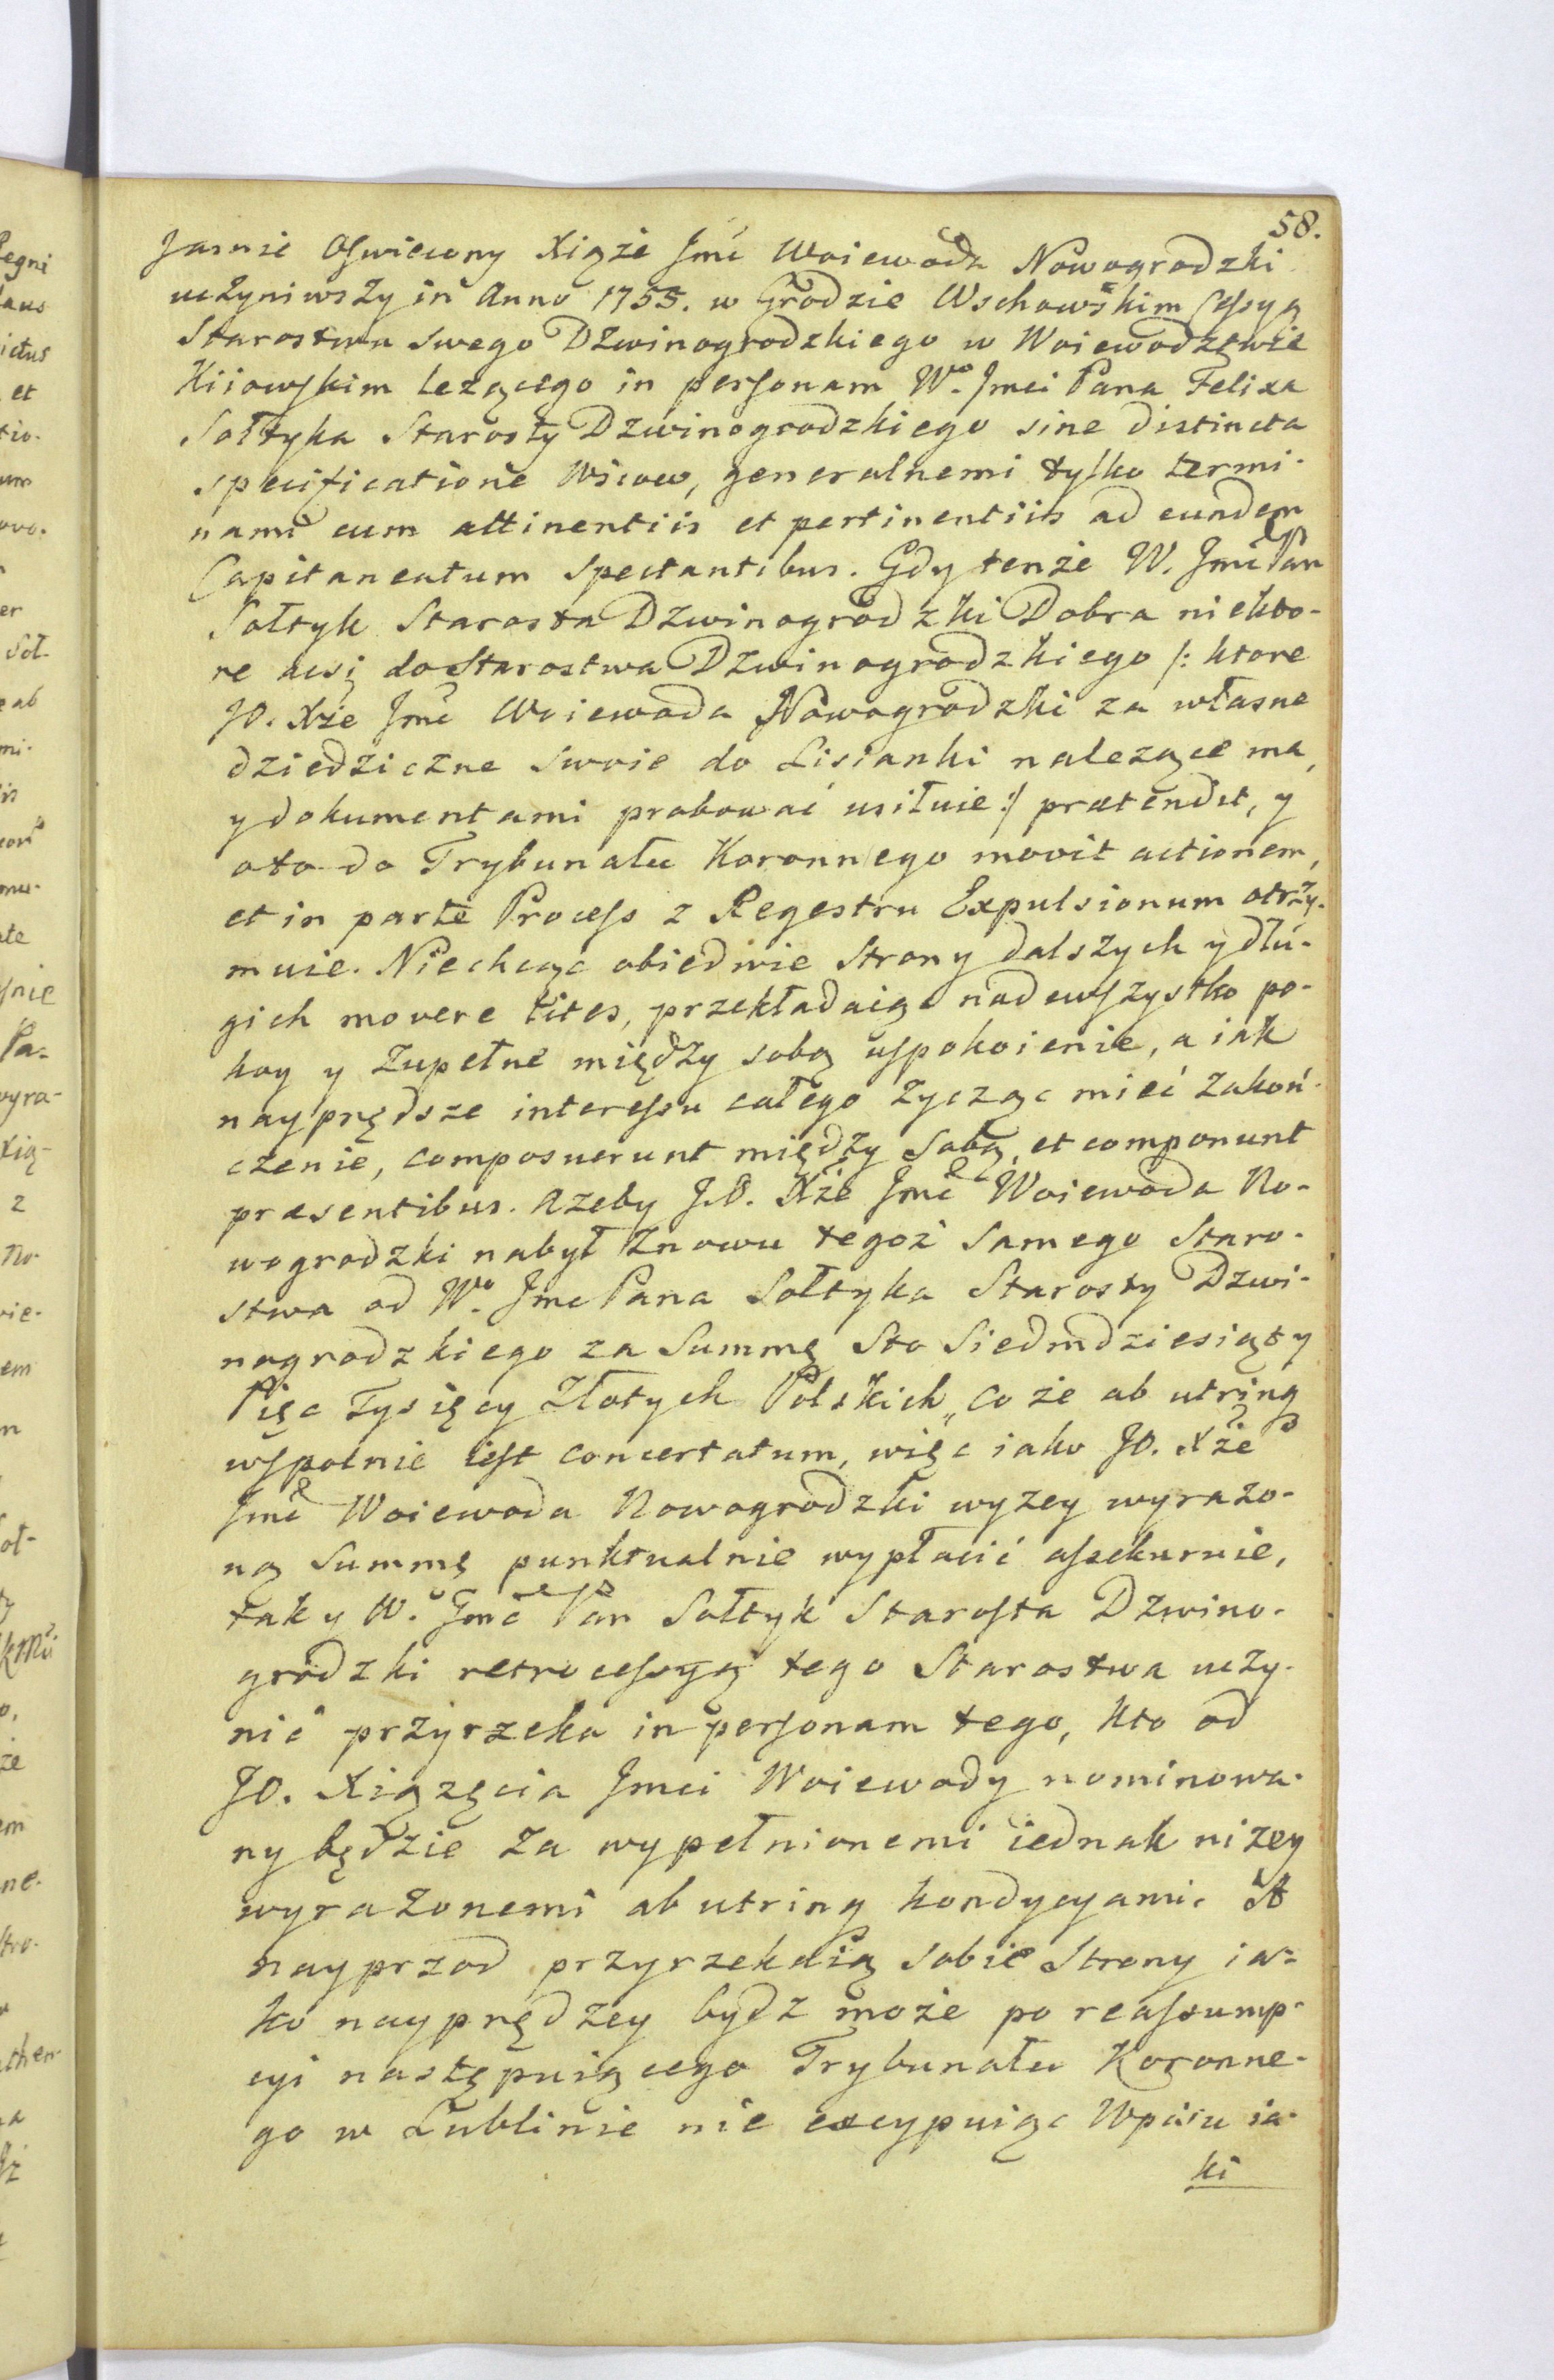 58.
Jasnie Oswiecony Xiąże Jmć Woiewoda Nowogrodzki
uczyniwszy in Anno 1755. w Grodzie Wschowskim Cessyą
Starostwa swego Dzwinogrodzkiego w Woiewodztwie
Kiiowskim leżącego in personam Wo. Jmci Pana Felixa
Sołtyka Starosty Dzwinogrodzkiego sine distincta
specificatione Wsiow, generalnemi tylko termi-
nami cum attinentiis et pertinentiis ad eundem
Capitaneatum spectantibus. Gdy tenże W. Jmć Pan
Sołtyk Starosta Dzwinogrodzki Dobra niekto-
re do Starostwa Dzwinogrodzkiego /: ktore
JO. Xże Jmć Woiewoda Nowogrodzki za własne
dziedziczne swoie do Lisianki należące ma,
y dokumentami probować usiłuie :/ prætendit, y
oto do Trybunału Koronnego movit actionem,
et in parte Process z Regestru Expulsionum otrzy-
muie. Niechcąc obiedwie Strony dalszych y dłu-
gich movere lites, przekładaiąc nadewszystko po-
koy y zupełne między sobą uspokoienie, a iak
nayprędsze interessu całego życząc mieć zakoń-
czenie, composuerunt między sobą, et componunt
præsentibus. Ażeby J.O. Xże Jmć Woiewoda No-
wogrodzki nabył znowu tegoż samego Staro-
stwa od Wo. Jmc Pana Sołtyka Starosty Dzwi-
nogrodzkiego za Summę Sto Siedmdziesiąt y
Pięc Tysięcy Złotych Polskich, co że ab utrinq
wspolnie iest concertatum, więc iako JO. Xże
Jmć Woiewoda Nowogrodzki wyzey wyrażo-
ną Summę punktualnie wypłacić assekuruie,
tak y W. Jmć Pan Sołtyk Starosta Dzwino-
grodzki retrocessyą tego Starostwa uczy-
nić przyrzeka in personam tego, kto od
JO. Xiążęcia Jmci Woiewody nominowa-
ny będzie za wypełnionemi iednak niżey
wyrażonemi ab utrinq kondycyami. A
nayprzod przyrzekaią sobie Strony ia-
ko nayprędzey bydz może po reassump-
cyi następuiącego Trybunału Koronne-
go w Lublinie nie excypuiąc Wpisu ia-
ki